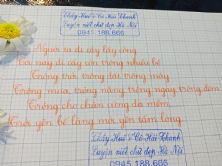 Thầy Huế - Cô Hải Thanh
Luyện viết chữ đẹp Hà Nội
0945.188.666
Người ta đi cấy lấy công
Tôi nay đi cấy còn trông nhiều bề
Trông trời, trông đất, trông mây
Trông mưa, trông nắng, trông ngày, trông đêm
Trông cho chân cứng đá mềm,
Trời yên bể lặng mới yên tấm lòng.
Thầy Huế - Cô Hải Thanh
Luyện viết chữ đẹp Hà Nội
0945.188.666